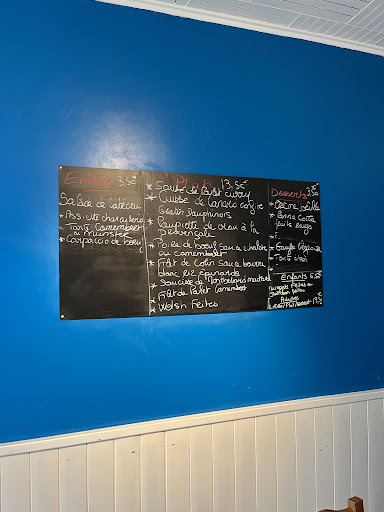 Entrée 5,5€
Salade de
* Assiette charcuterie
* Tarte Camembert
ou munster
* Carpaccio de boeuf
Plats 13,5€
* Sauté de Poulet curry
* Cuisse de Canard confite
Gratin Dauphinois
* Paupiette de veau à la
Provençale
* Poire de boeuf sauce échalote
ou camembert
* Filet de Colin sauce beurre
blanc riz épinards
* Saucisse de Montbéliard moutarde
* Filet de Poulet Camembert
* Welsh Frites
Desserts
* Crème brûlée
* Panna Cotta
fruits rouges
* Gaufre
* Tarte
Enfants 6,5€
Nuggets Frites ou
Jambon
Adultes